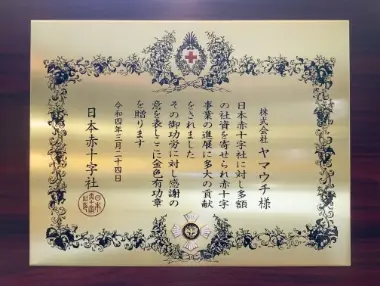 株式会社 ヤマウチ 様
日本赤十字社に対し多額
の社資を寄せられ赤十字
事業の進展に多大の貢献
をされました
その御功労に対し感謝の
意を表しここに金色有功章
を贈ります
令和四年三月二十四日
日本赤十字社